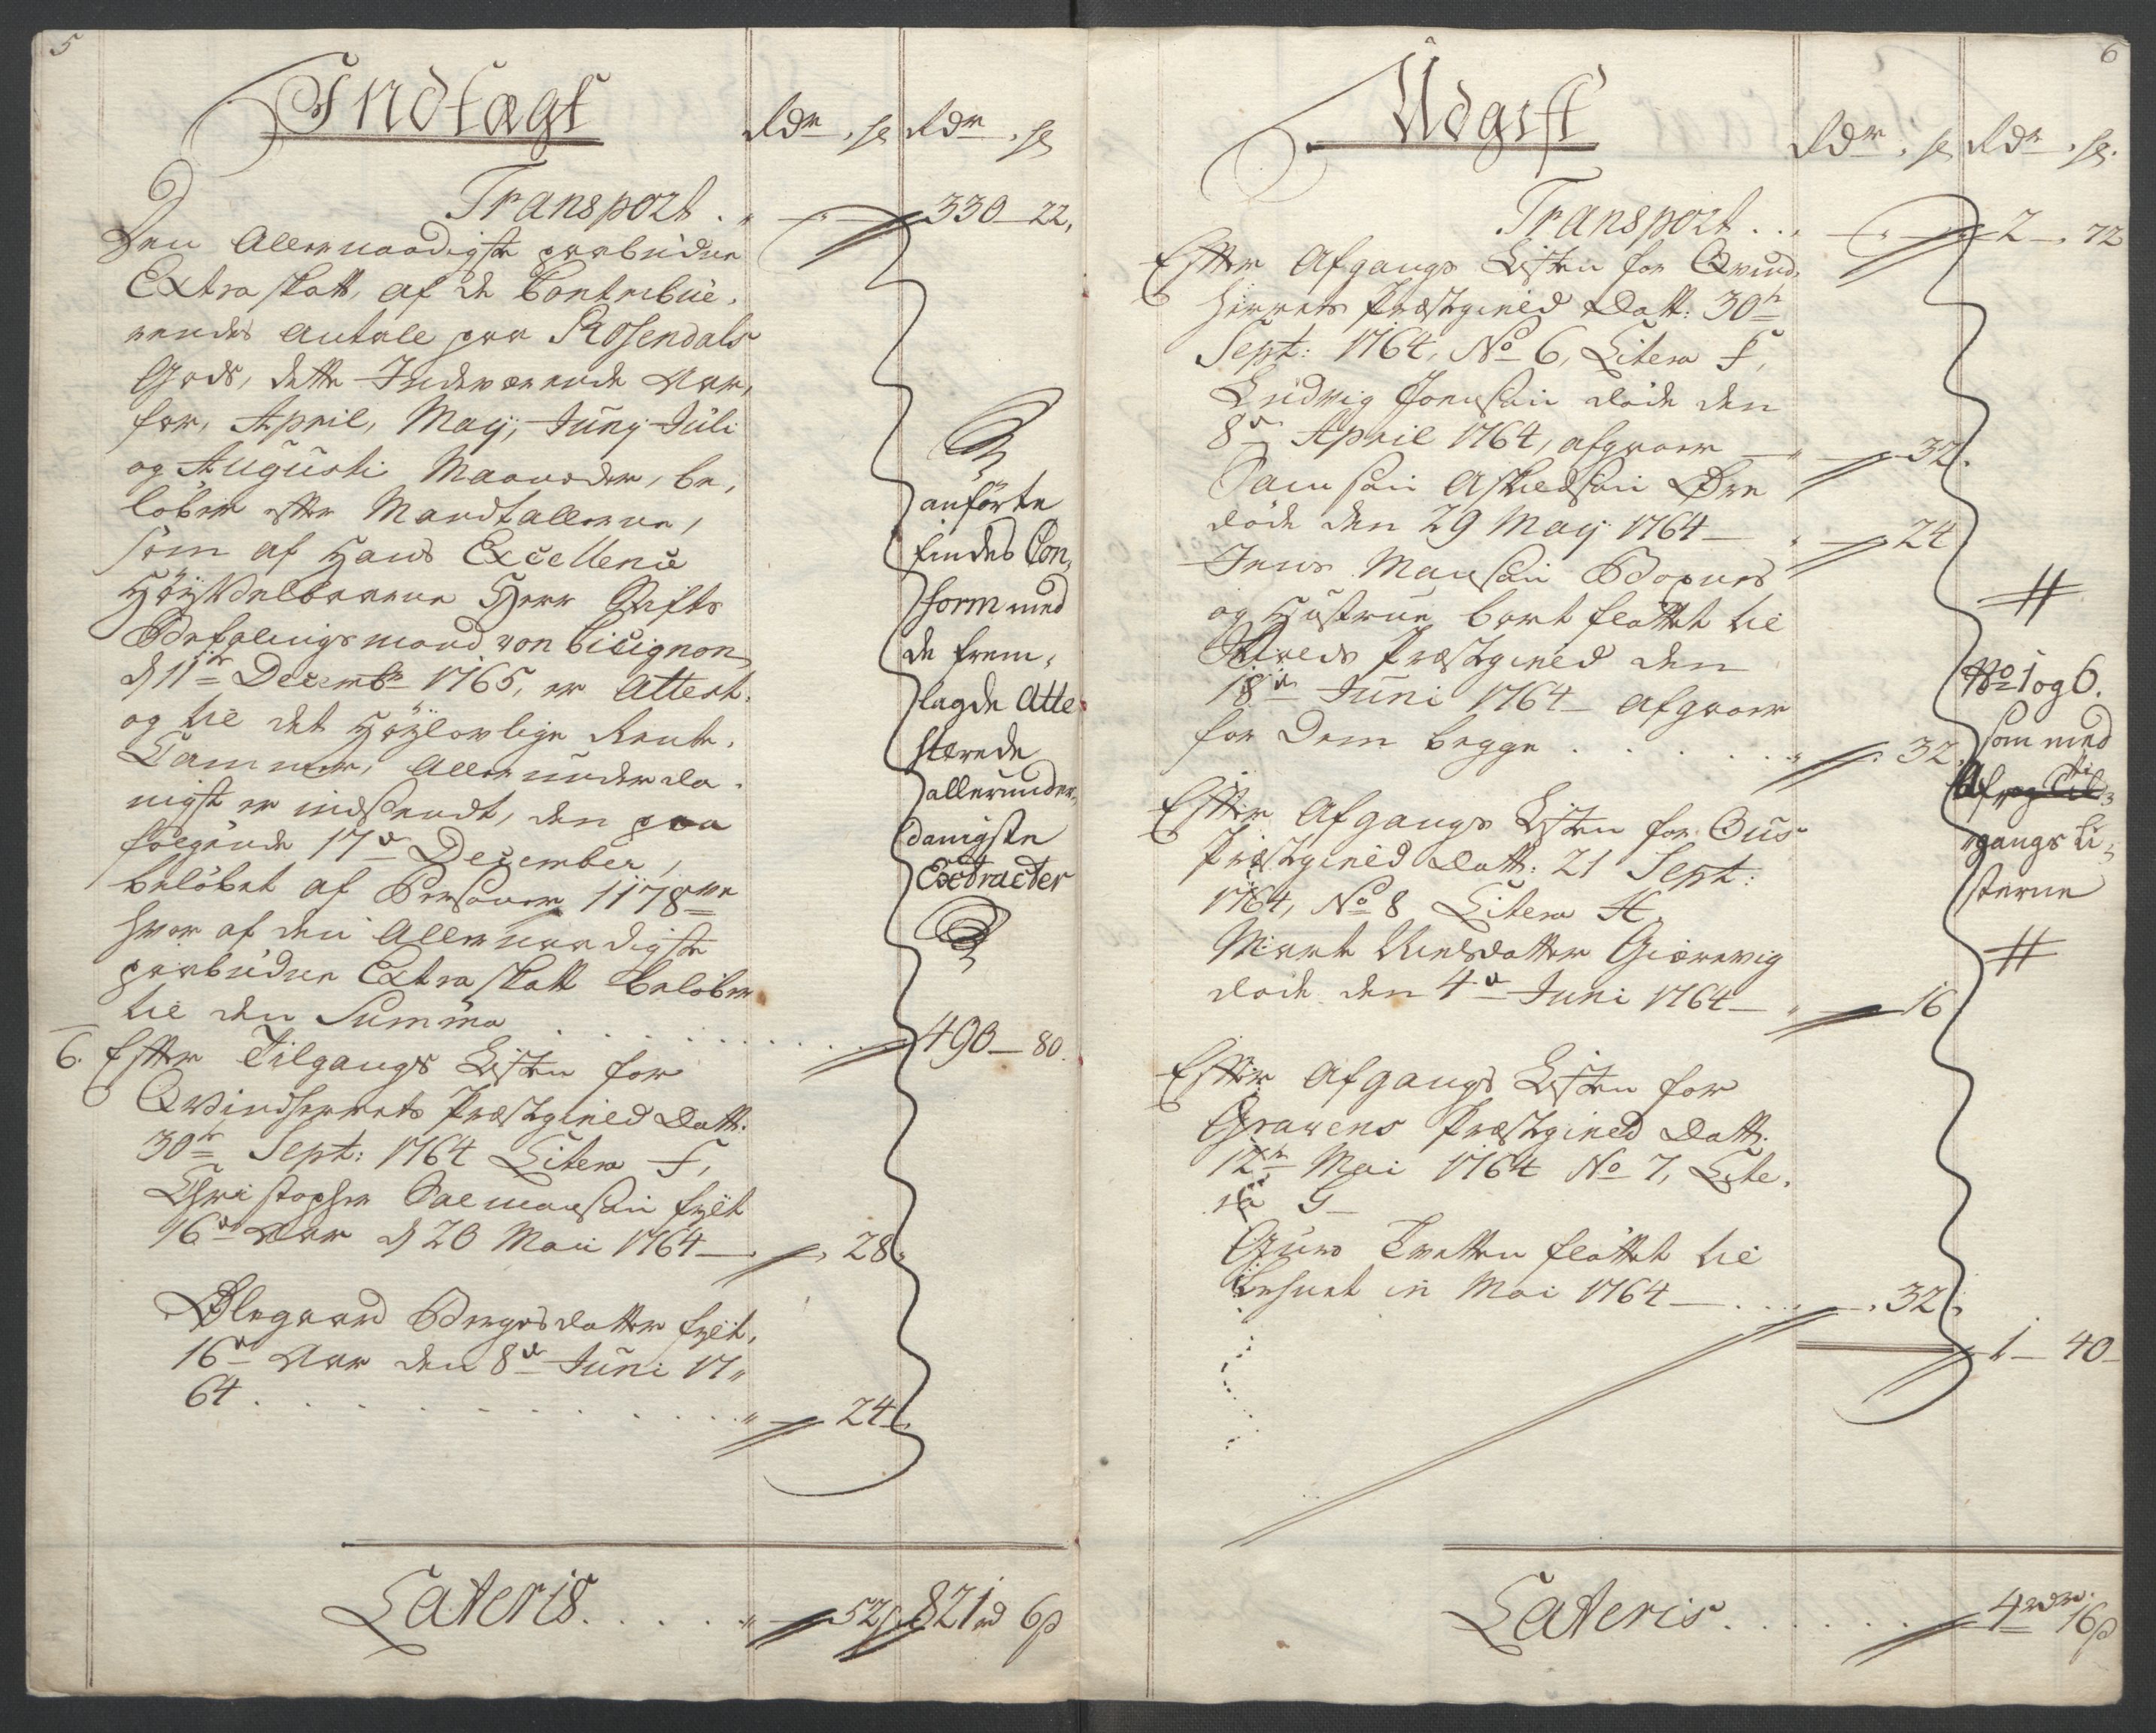 5
Indtægt
Rdr. s. Rdr. s.
Transport . " — 330 — 22,
Den Allernaadigste paabudne
Extra skatt, af de Contribue,
rendes antale paa Rosendals
Gods, dette Indeværende Aar,
for, April, May, Juny Juli
og Augusti Maaneder, be,
løber efter Mandtallerne,
som af Hans Excellence
Høyvelbaarne Herr Stifts
Befalingsmand von Cicignon
d 11te Decembr 1765, er Attest.
og til det Høylovlige Rente,
Cammer, Allerunderda,
nigst er indsendt, den paa
følgende 17de December,
beløbet af Persohner 1178ve
hvor af den Allernaadigste
paabudne Extra skatt beløber
til den Summa . . . . . 490 — 80.
anførte
findes Con,
form med
de frem,
lagde Atte
sterede
allerunder,
danigste
Extracter
6. Efter Tilgangs Listen for
Qvindherrets Præstegield Datt.
30te Sept: 1764 Litera F,
Christopher Salmonsøn fyldt
16de Aar d 20 Maii 1764 — " — 28.
Ølegaard Børgesdatter fyldt,
16de Aar den 8de Juni 17"
64 . . . . . " — 24.
Lateris . . . . " — 52 s. 821 rd 6 s
6
Udgift
Rdr. s. Rdr. s.
Transport . . — 2 — 72
Efter Afgangs Listen for Qvind,
herrets Præstegield Datt: 30te
Sept: 1764, No 6, Litera F,
Ludvig Joensøn døde den
8de April 1764, afgaaer — " — 32.
Samsøn Aslaksøn Øre
døde den 29 May 1764 — " — 24
Jens Mansøn Bognes
og Hustrue bort fløttet til
Præstegield den
18de Juni 1764 — Afgaaer
for Dem begge . . . . " — 32.
Efter Afgangs Listen for Ous
Præstegield Datt: 21 Sept:
1764, No 8 Litera H,
Marte Nielsdatter Giærevig
døde den 4de Juni 1764 — " — 16
#
No 1 og 6.
som med
Af
gangs Li,
sterne
#
Efter Afgangs Listen for
Gravens Præstegield Datt.
12te Mai 1764 No 7, Lite,
ra G —
Guro Tvetten fløttet til
in Mai 1764 — . . . — . 32.
1 — 40 —
Lateris . . . . . . 4 rdr. 16 s